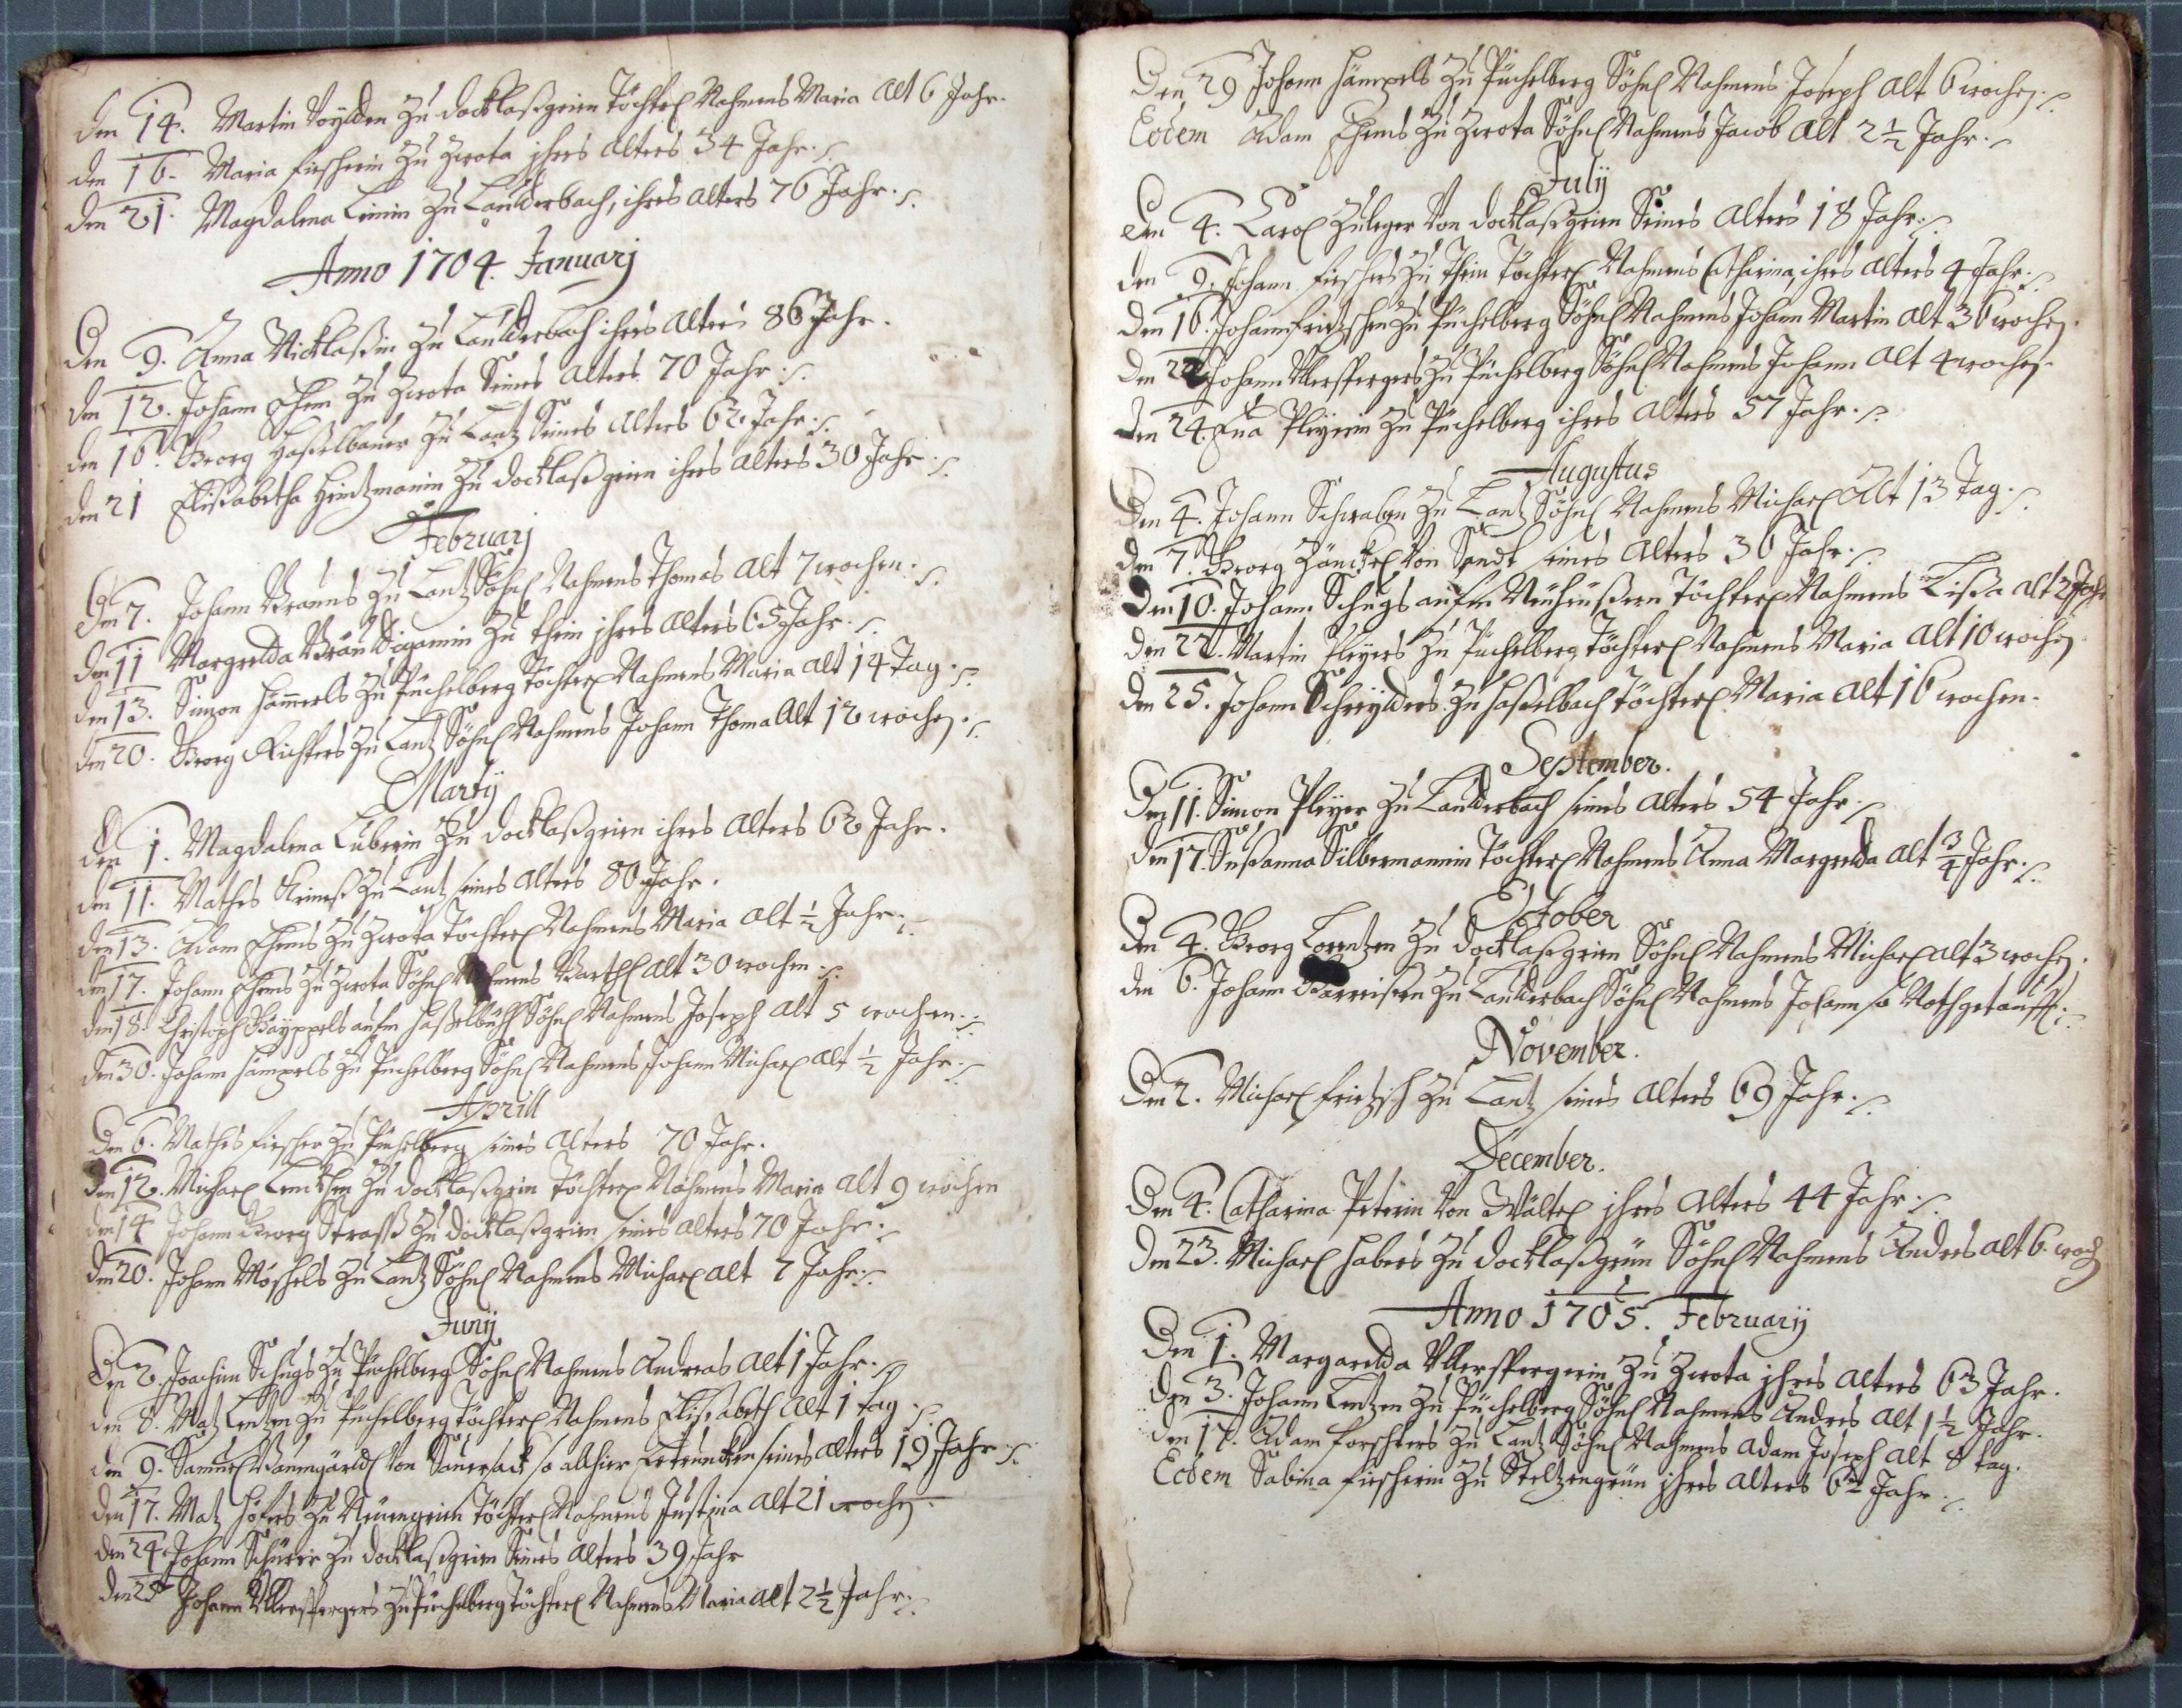 den 14. Martin Voylden zu docklaßgrün Töchterl Nahmens Maria alt 6 Jahr.
den 16. Maria Fischerin zu Zwota ihres alters 34 Jahr.
den 21. Magdalena Leinin zu Lauderbach, ihres alters 76 Jahr.
Anno 1704. Januarj
Den 9. Anna Nicklaßin zu Lauderbach ihres alters 86 Jahr.
den 12. Johann Ehm zu Zwota Seines alters 70 Jahr.
den 16. Georg Haßelbauer zu Lantz Seines alters 62 Jahr.
den 21 Elisabetha Heintzmanin zu docklaßgrün ihres alters 30 Jahr.
Februarj
Den 7. Johann Brauns zu Lantz Söhnl Nahmens Thomas alt 7 wochen.
den 11 Margretha zu Thein ihres alters 65 Jahr.
den 13. Simon Hämerls zu Püchelberg Töchterl Nahmens Maria alt 14 Tag.
den 20. Georg Richters zu Lantz Söhnl Nahmens Johann Thoma alt 12 wochen.
Martij
Den 1. Magdalena Luberin zu docklaßgrün ihres alters 62 Jahr.
den 11. Mathes zu Lantz seines alters 80 Jahr.
den 13. Adam Ehms zu Zwota Töchterl Nahmens Maria alt 1/2 Jahr.
den 17. Johann Ehms zu Zwota Söhnl Nahmens Barthl alt 30 wochen.
den 18. Christoph aufm Haßelbüchl Söhnl Nahmens Joseph alt 5 wochen.
den 30. Johann Hämpels zu Püchelberg Söhnl Nahmens Johann Michael alt 1/2 Jahr.
Aprill
Den 6. Mathes Fischer zu Püchelberg seines alters 70 Jahr.
den 12. Michael zu docklaßgrün Töchterl Nahmens Maria alt 9 wochen
den 14 Johann Georg Straß zu docklaßgrün seines alters 70 Jahr.
den 20. Johann Möschels zu Lantz Söhnl Nahmens Michael alt 7 Jahr.
Junij
Den 2. Joachim Schugs zu Püchelberg Söhnl Nahmens Andreas alt 1 Jahr.
den 8. Matz Lentzen zu Püchelberg Töchterl Nahmens Elisabeth alt 1 Tag.
den 9. Samuel Baumgärtl von Sauersack so allhier Ertruncken seines alters 19 Jahr.
den 17. Matz Höfers zu Neuengrün Töchterl Nahmens Justina alt 21 wochen.
den 24 Johann Schürer zu docklaßgrün Seines alters 39 Jahr
den 25 Johann Ullersperger's zu Püchelberg Töchterl Nahmens Maria alt 2 1/2 Jahr.
Den 29 Johann Hämpels zu Püchelberg Söhnl Nahmens Joseph alt 6 wochen.
Eodem Adam Ehms zu Zwota Söhnl Nahmens Jacob alt 2 1/2 Jahr.
July
Den 4. Carol Zuleger von docklaßgrün Seines alters 18 Jahr.
den 9. Johann Fischers zu Thein Töchterl Nahmens Catharina, ihres alters 4 Jahr.
den 16. Johann Fritzschen zu Püchelberg Söhnl Nahmens Johann Martin alt 36 wochen.
den 22 Johann Ullerspergers zu Püchelberg Söhnl Nahmens Johann alt 4 wochen.
den 24. Eva Pleyerin zu Püchelberg ihres alters 57 Jahr.
Augustus
Den 4. Johann Schwaben zu Lantz Söhnl Nahmens Michael alt 13 Tag.
den 7. Georg von seines alters 36 Jahr.
Den 10. Johann Schugs aufm Neuhäußern Töchterl Nahmens Lisa alt 2 Jahr
den 22. Martin Pleyers zu Püchelberg Töchterl Nahmens Maria alt 10 wochen
den 25. Johann Schreyders zu Haßelbach Töchterl Maria alt 16 wochen.
September.
Den 11. Simon Pleyer zu Lauderbach seines alters 54 Jahr.
den 17. Sußanna Silbermannin Töchterl Nahmens Anna Margretha alt 3/4 Jahr.
October
Den 4. Georg Lorentzen zu docklaßgrün Söhnl Nahmens Michael alt 3 wochen.
den 6. Johann zu Lauderbach Söhnl Nahmens Johann so Nothgetaufft.
November.
Den 2. Michael Fritzsch zu Lantz seines alters 69 Jahr.
December.
Den 4. Catharina Peterin von ihres alters 44 Jahr.
Den 23. Michael Habers zu docklaßgrün Söhnl Nahmens Andres alt 6. woch
Anno 1705. Februarij
Den 1. Margaretha Ullerspergerin zu Zwota ihres alters 63 Jahr.
Den 3. Johann Lentzen zu Püchelberg Söhnl Nahmens Andres alt 1 1/2 Jahr.
Den 17. Adam Forschters zu Lantz Söhnl Nahmens Adam Joseph alt 8 tag.
Eodem Sabina Fischerin zu Steltzengrün ihres alters 62 Jahr.